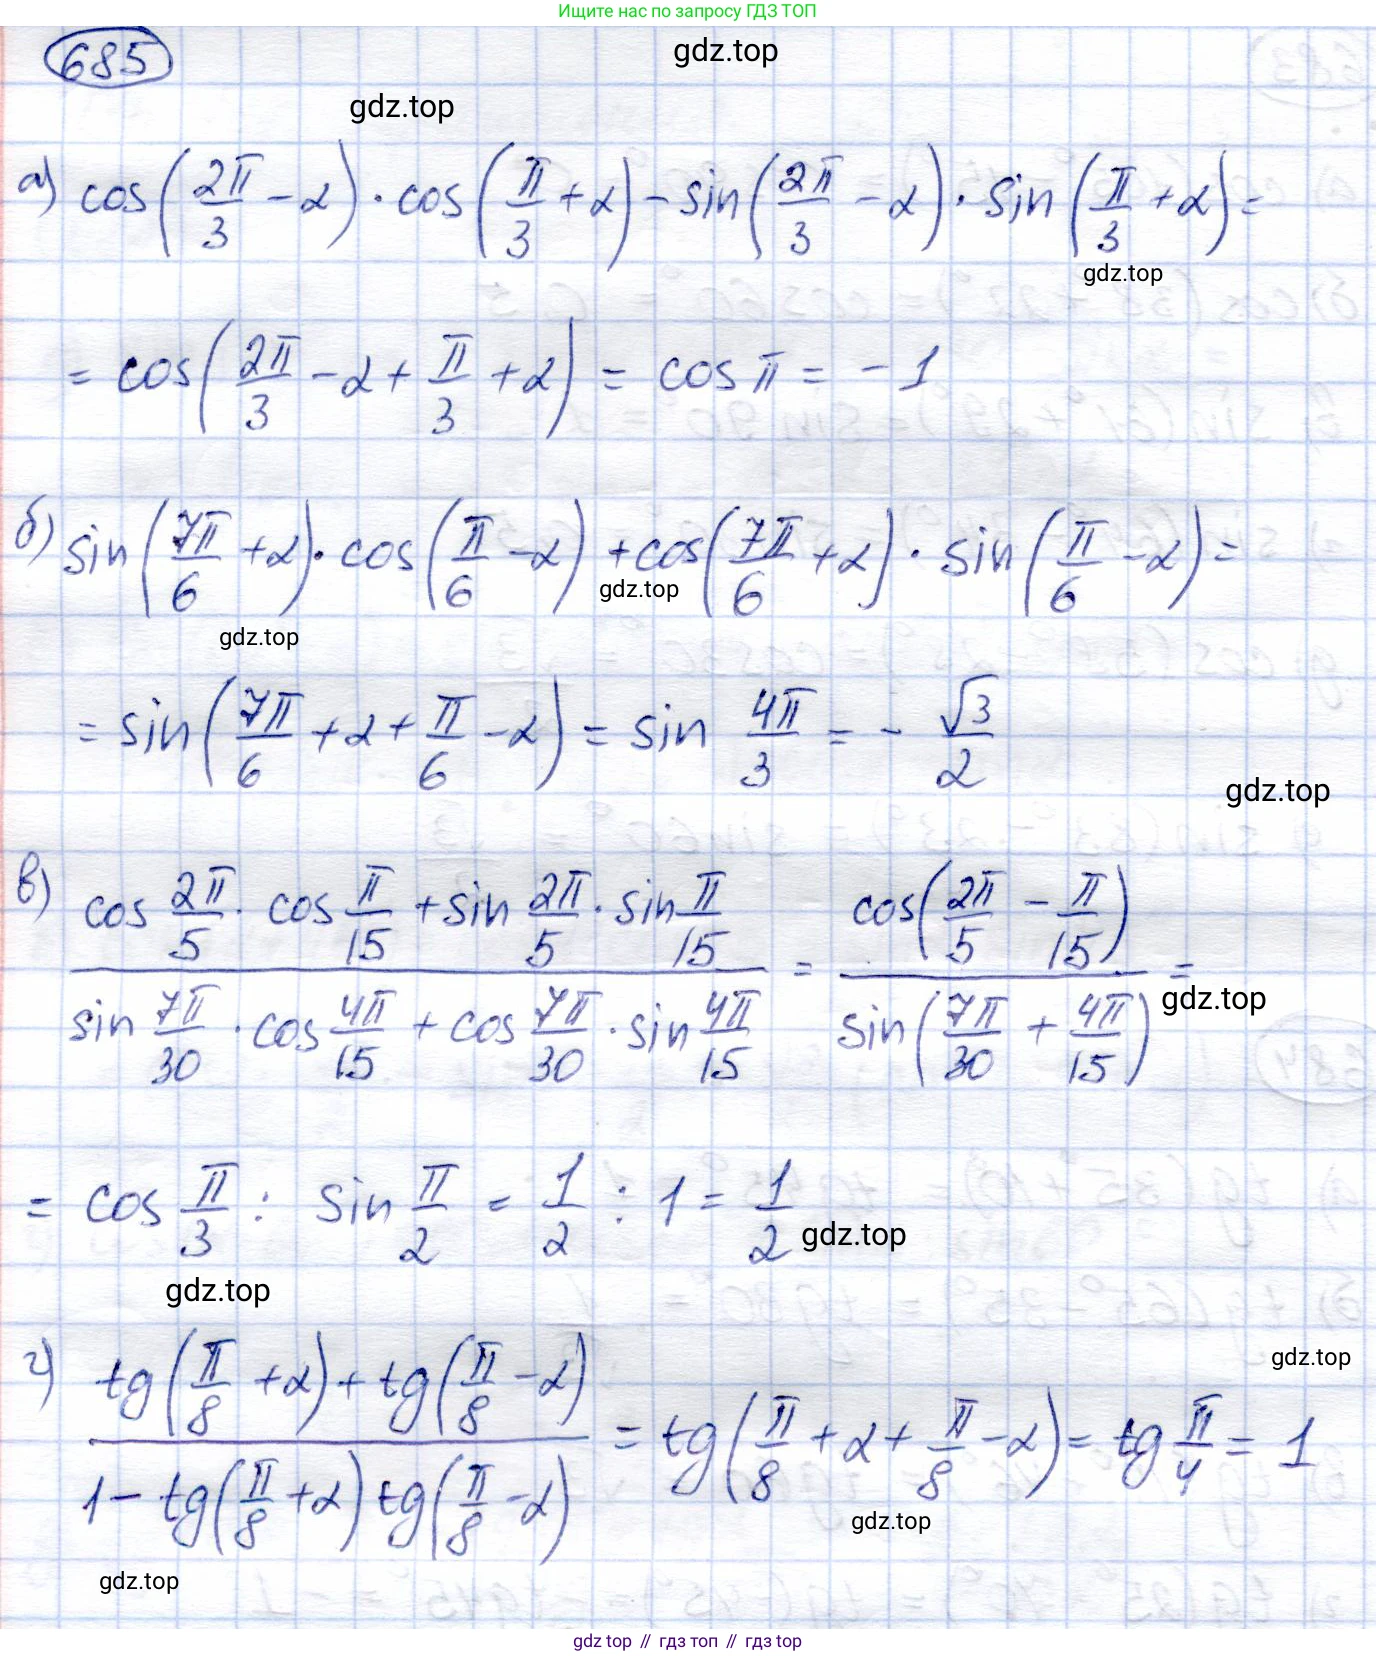 Ищите нас по запросу ГДЗ ТОП
685
gdz.top
gdz.top
а) cos(2π/3 − α) · cos(π/3 + α) − sin(2π/3 − α) · sin(π/3 + α) =
gdz.top
= cos(2π/3 − α + π/3 + α) = cos π = −1
б) sin(7π/6 + α) · cos(π/6 − α) + cos(7π/6 + α) · sin(π/6 − α) =
gdz.top
gdz.top
= sin(7π/6 + α + π/6 − α) = sin 4π/3 = − √3/2
gdz.top
в) (cos 2π/5 · cos π/15 + sin 2π/5 · sin π/15) / (sin 7π/30 · cos 4π/15 + cos 7π/30 · sin 4π/15) = cos(2π/5 − π/15) / sin(7π/30 + 4π/15) =
gdz.top
= cos π/3 : sin π/2 = 1/2 : 1 = 1/2
gdz.top
gdz.top
gdz.top
г) (tg(π/8 + α) + tg(π/8 − α)) / (1 − tg(π/8 + α) tg(π/8 − α)) = tg(π/8 + α + π/8 − α) = tg π/4 = 1
gdz.top
gdz.top
gdz top // гдз топ // gdz top